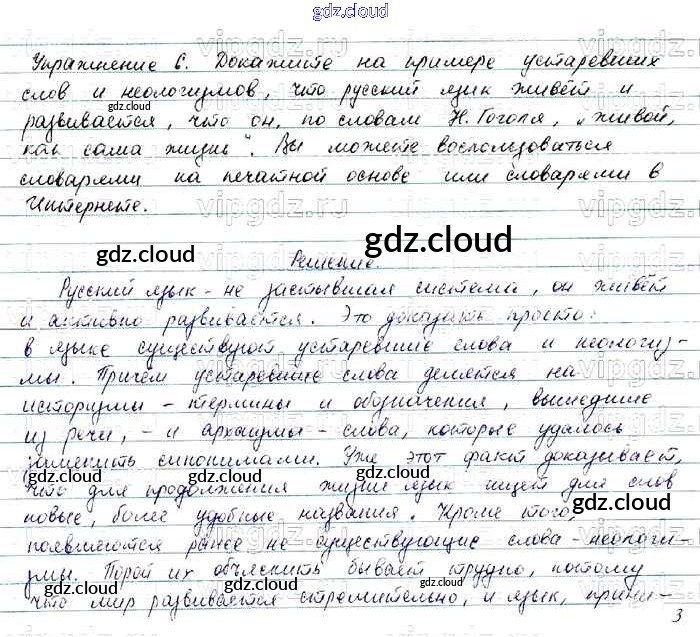 gdz.cloud
Упражнение 6. Докажите на примере устаревших
слов и неологизмов, что русский язык живёт и
развивается, что он, по словам Н. Гоголя, „живой,
как сама жизнь". Вы можете воспользоваться
словарями на печатной основе или словарями в
Интернете.
Решение.
Русский язык - не застывшая система, он живёт
и активно развивается. Это доказать просто:
в языке существуют устаревшие слова и неологиз-
мы. Причём устаревшие слова делятся на
историзмы - термины и обозначения, вышедшие
из речи, - и архаизмы - слова, которые удалось
заменить синонимами. Уже этот факт доказывает,
что для продолжения жизни язык ищет для слов
новые, более удобные названия. Кроме того,
появляются ранее не существующие слова - неологи-
змы. Порой их объяснить бывает трудно, потому
что мир развивается стремительно, и язык, прини-
3
gdz.cloud
gdz.cloud
gdz.cloud
gdz.cloud
gdz.cloud
gdz.cloud
gdz.cloud
gdz.cloud
gdz.cloud
gdz.cloud
vipgdz.ru